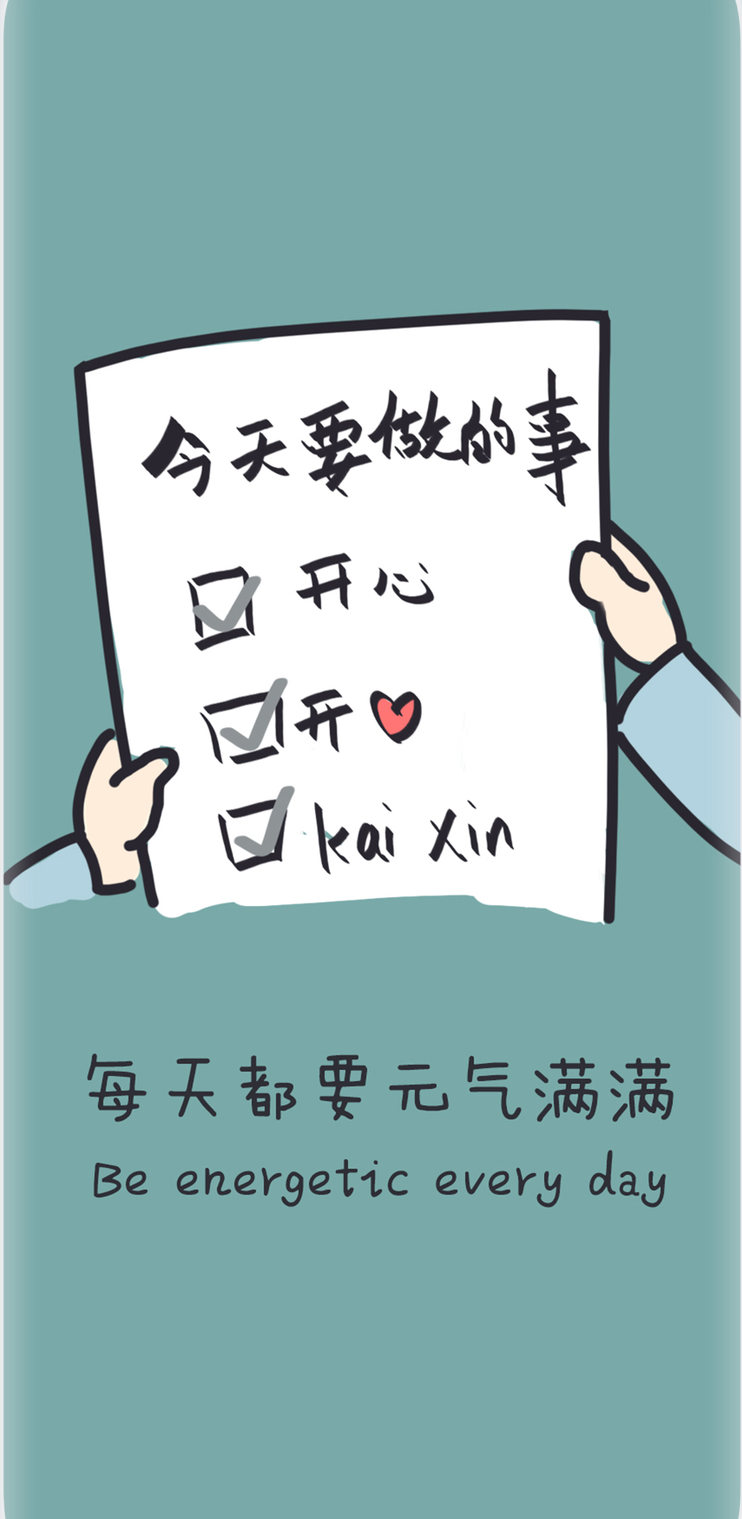 今天要做的事
开心
开❤
kai xin
每天都要元气满满
Be energetic every day